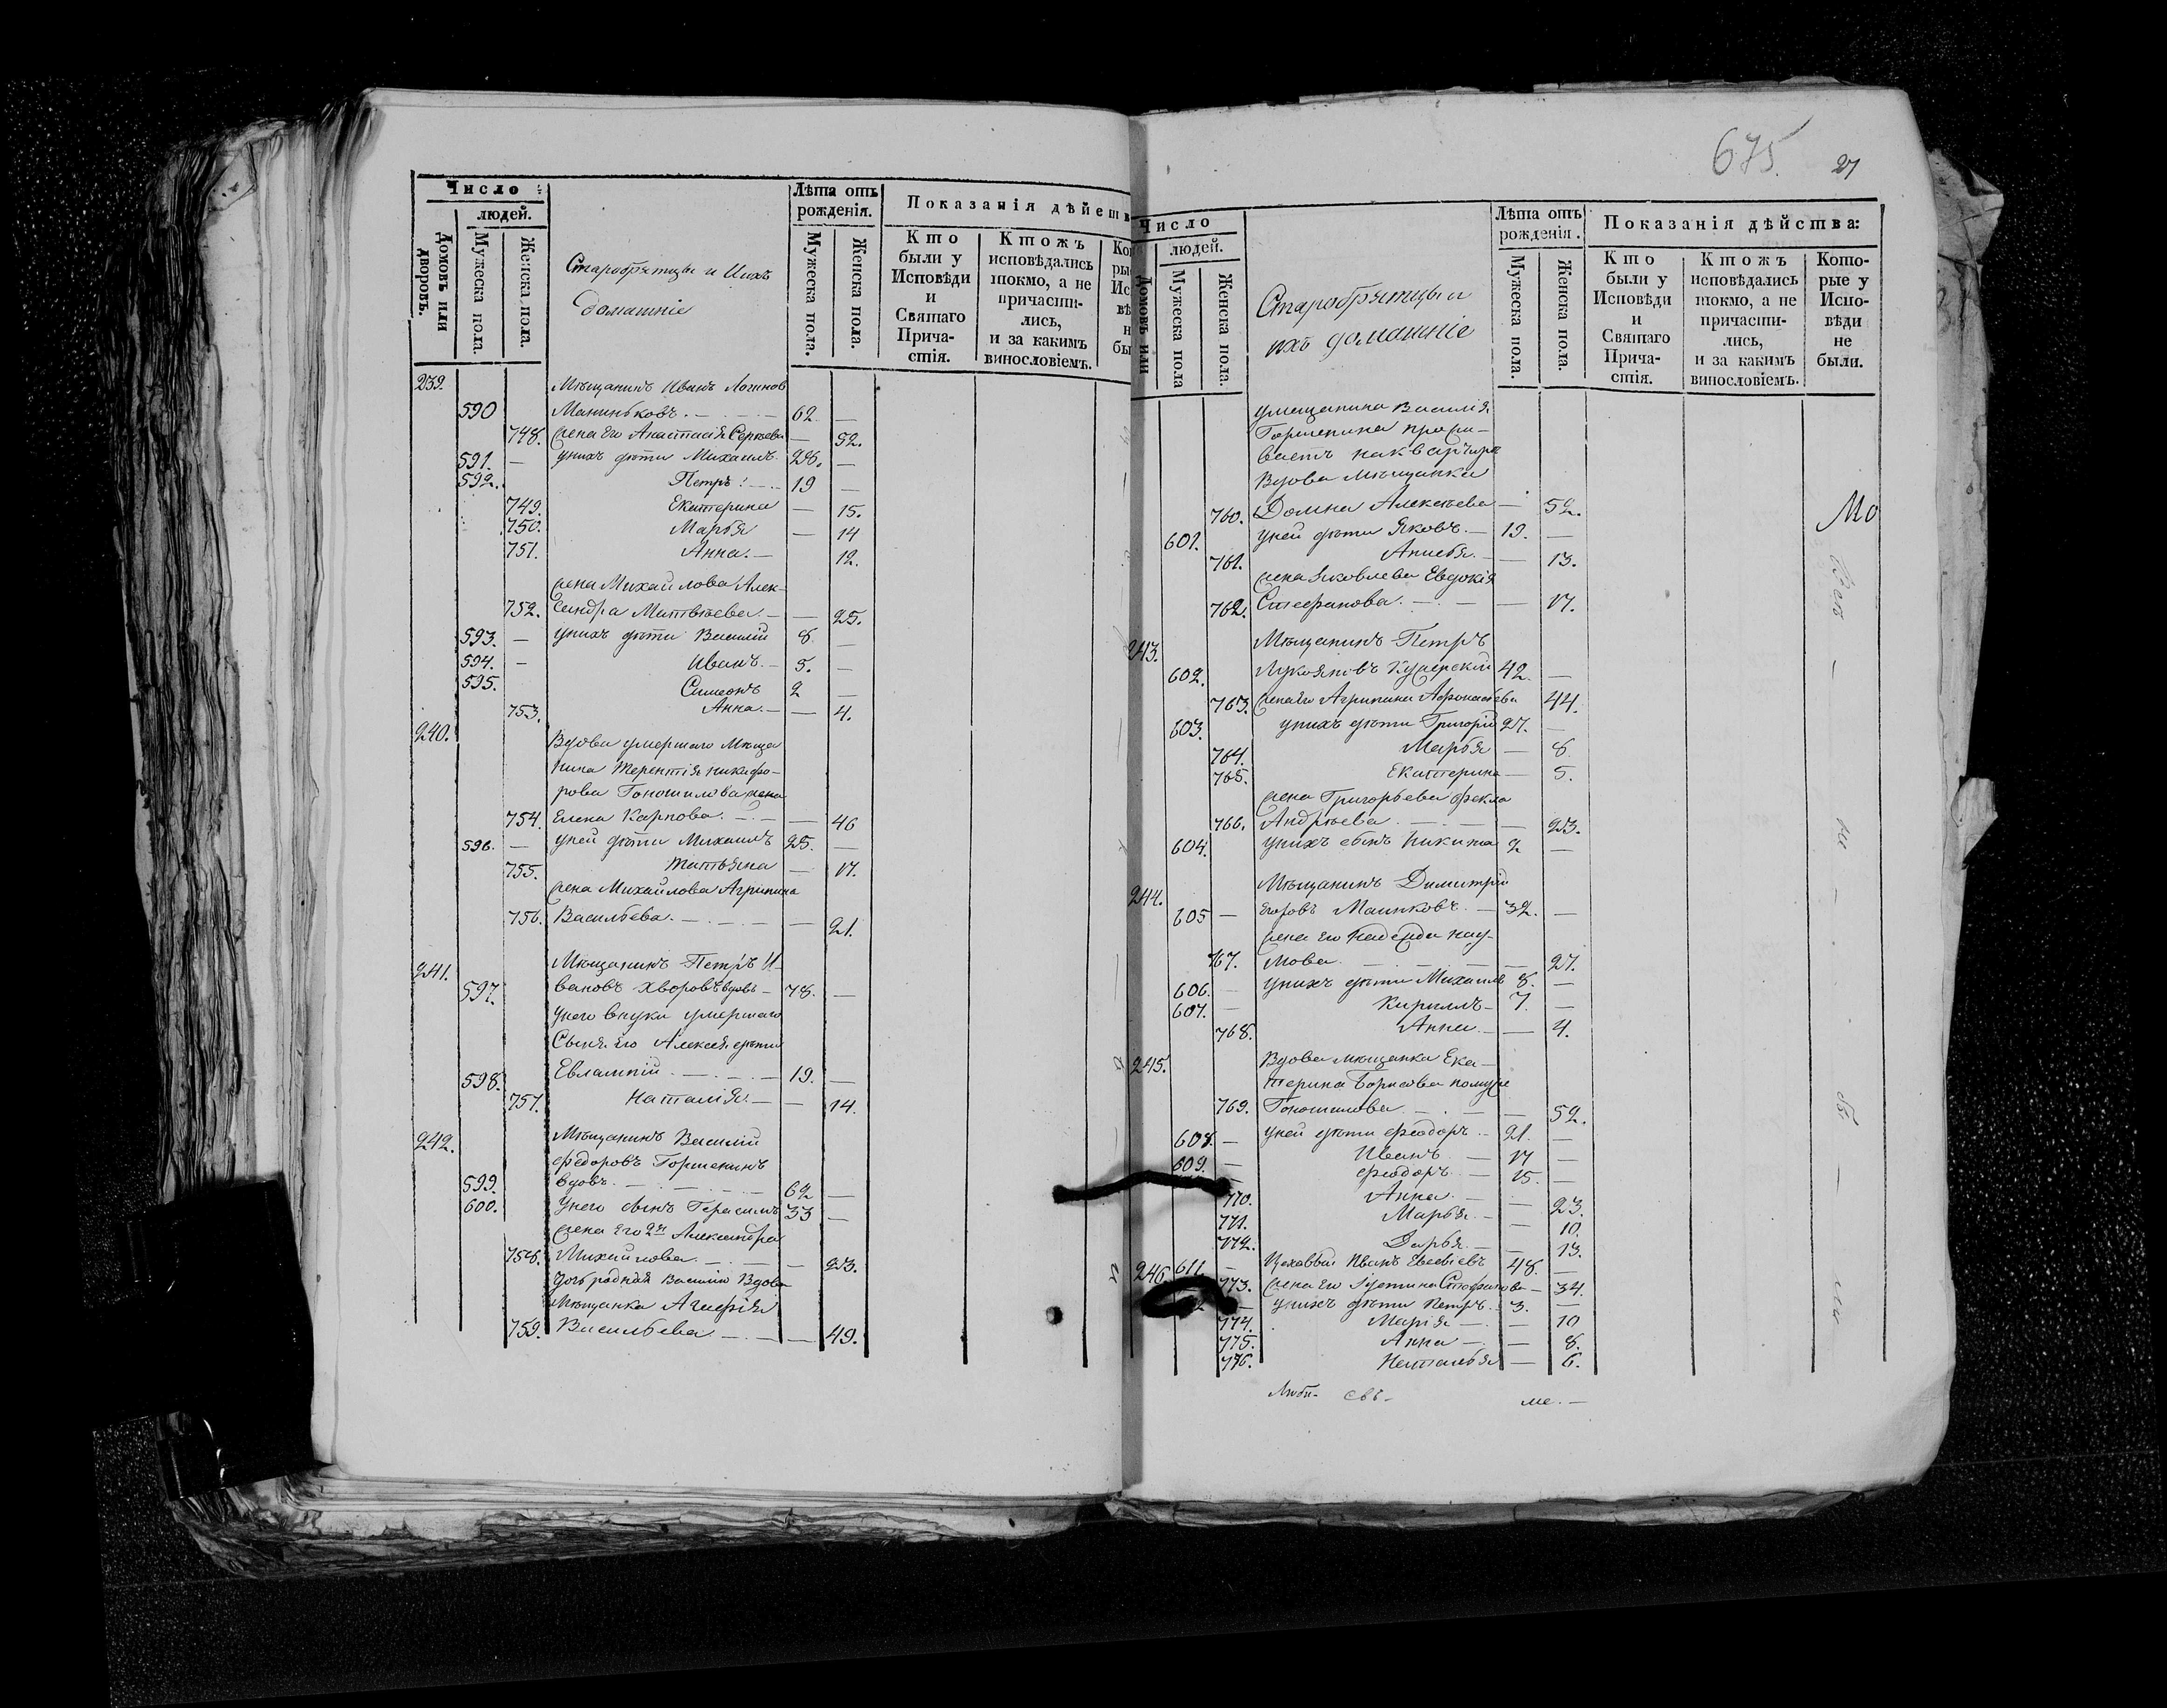 675.
27
Число
людей.
Домовъ или дворовъ.
Мужеска пола.
Женска пола.
Старобрятцы и Ихъ
домашніе
Лѣта отъ рожденія.
Мужеска пола.
Женска пола.
Показанія дѣйств
Кто были у Исповѣди и Святаго Прича-стія.
Ктожъ исповѣдались токмо, а не причасти-лись, и за какимъ винословіемъ.
239. Мѣщанинъ Иванъ Логинов
590 Маниньковъ. 62 —
748. жена его Анастасія Сергѣева — 52.
591. — унихъ дѣти Михаилъ 28. —
592. Петръ 19 —
749. Екатерина — 15.
750. Марья — 14
751. Анна. — 12.
жена Михайлова Алек-
752. сандра Матвѣева. — 25.
593. — унихъ дѣти Василій 8 —
594. — Иванъ. 5. —
595. Симеонъ 2 —
753. Анна. — 4.
240. Вдова умершаго Мѣща
нина Терентія Никифо-
рова Гоношилова жена
754. Елена Карпова. — 46
596. — уней дѣти Михаилъ 25. —
755. Татьяна — 17.
жена Михайлова Агрипина
756. Васильева. — 21.
241. Мѣщанинъ Петръ И-
597. вановъ Хворовъ вдовъ — 78. —
унего внуки умершаго
Сына его Алексея дѣти
598. Евлампій. 19. —
757. Наталія. — 14.
242. Мѣщанинъ Василій
Федоровъ Горшенинъ
599. вдовъ. 62 —
600. унего сынъ Герасимъ 33 —
жена его 2я Александра
758. Михайлова. — 23.
Мѣщанка
759. Васильева — 49.
Число
людей.
Домовъ или
Мужеска пола
Женска пола.
Старобрятцы и
ихъ домашніе
Лѣта отъ рожденія.
Мужеска пола.
Женска пола.
Показанія дѣйства:
Кто были у Исповѣди и Святаго Прича-стія.
Ктожъ исповѣдались токмо, а не причасти-лись, и за какимъ винословіемъ.
Кото-рые у Испо-вѣди не были.
умещанина Василія
Горшенина прожи-
ваетъ на квартире
Вдова Мѣщанка
760. Домна Алексѣева — 52.
601. уней дѣти Яковъ. — 19. —
761. — 13.
жена Яковлева Евдокія
762. Стефанова. — 17.
243. Мѣщанинъ Петръ
602. 42. —
763. жена его Агрипина Афонасьева 44.
603. унихъ дѣти Григорій 27. —
764. Марья — 8
765. Екатерина — 5.
жена Григорьева Фекла
766. Андрѣева. — 23.
604. унихъ сынъ Никита 2 —
244. Мѣщанинъ Димитрій
605 — Егоровъ — 32. —
жена его Надежда Нау-
767. мова. — 27.
606. — унихъ дѣти Михаилъ 8. —
607. — Кириллъ — 7. —
768. Анна. — 4.
245. Вдова мѣщанка Ека-
терина Борисова помуже
769. Гоношилова. — 52.
608. — уней дѣти Феодоръ. 21. —
609. — Иванъ. — 17 —
Феодоръ. — 15. —
770. Анна. — 23.
771. Марья. — 10.
772. Дарья. — 13.
246 611 — Цеховый Иванъ 48. —
773. жена его Стефанова — 34.
— унихъ дѣти Петръ. 3. —
774. Марія — 10
775. Анна — 8.
776. Наталья — 6.